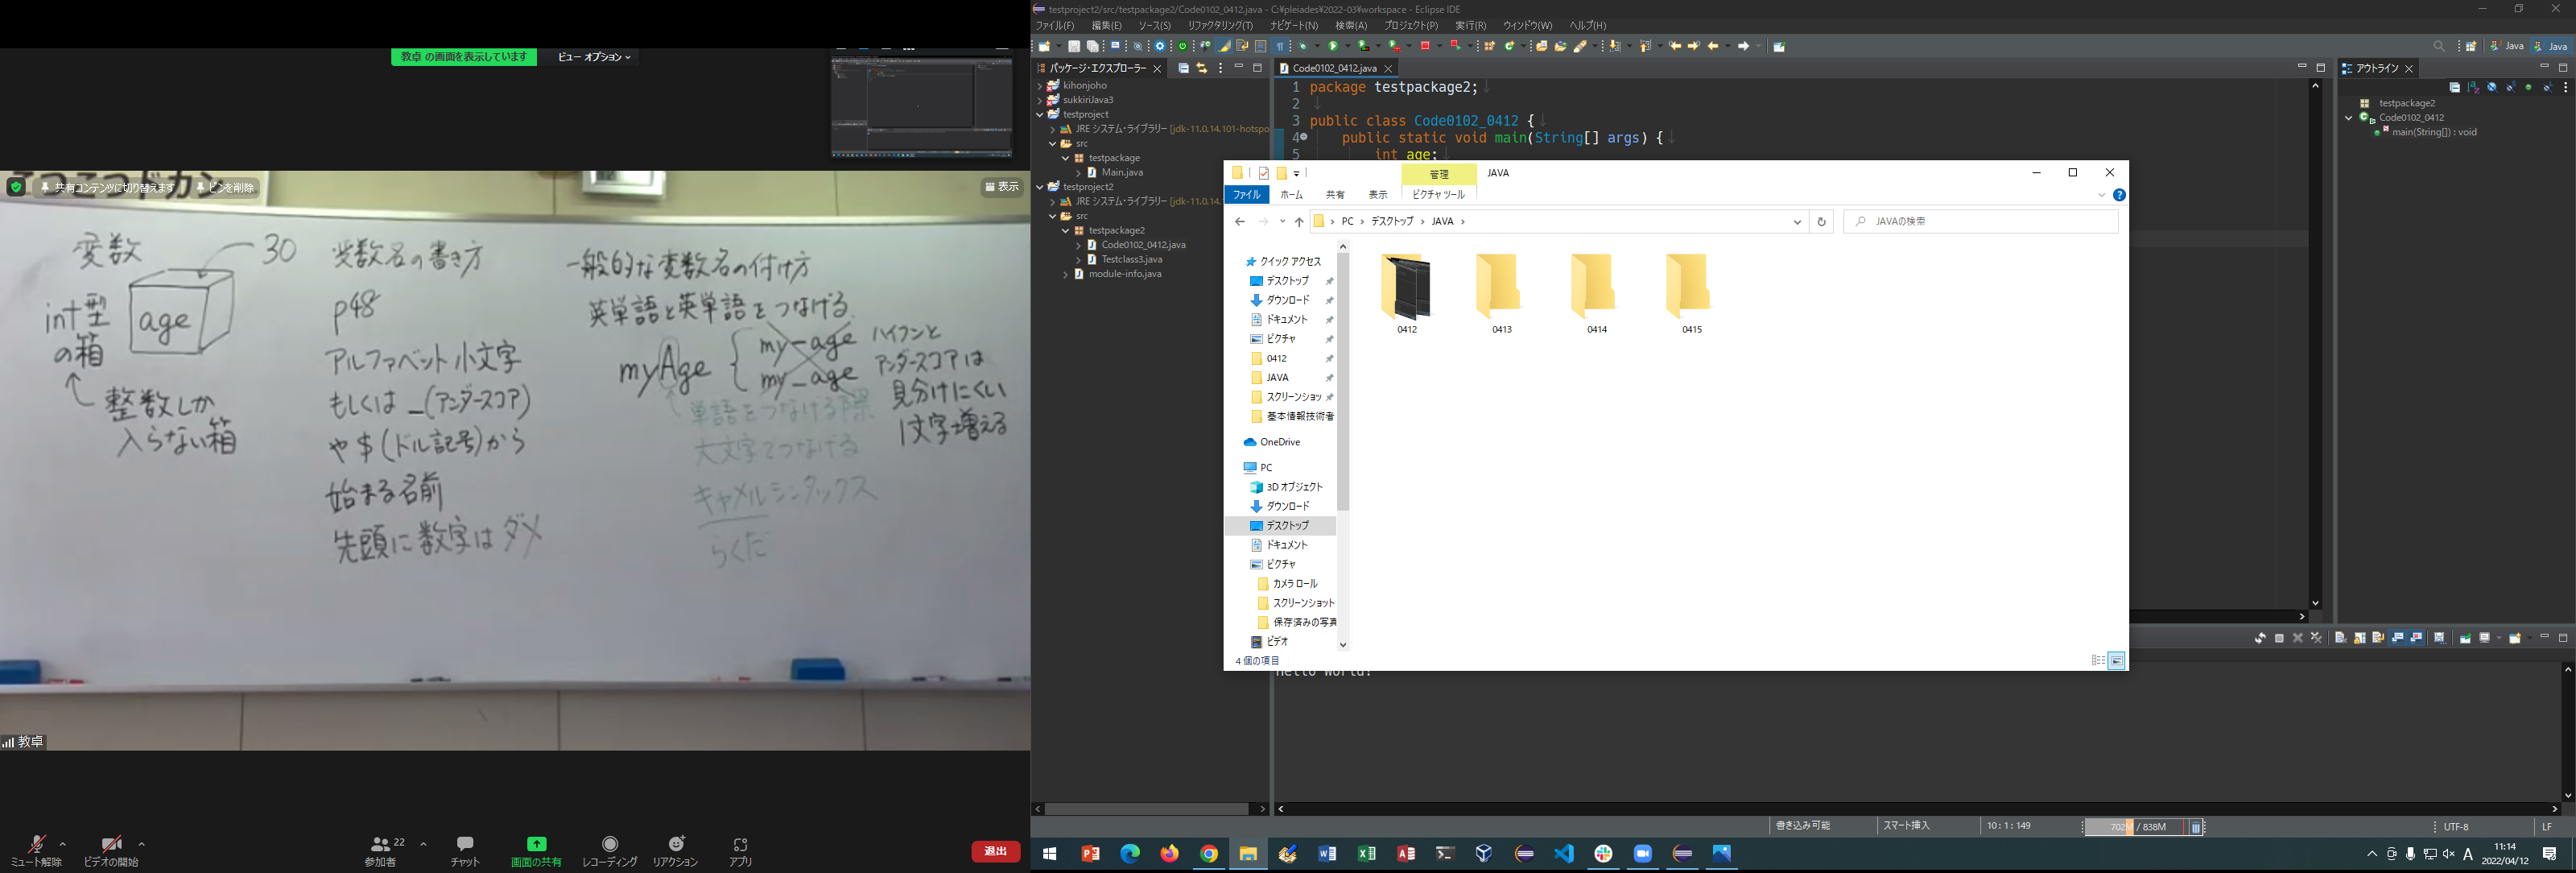 教卓 の画面を表示しています
ビュー オプション
共有コンテンツに切り替えます
ピンを削除
表示
変数
30
age
int型
の箱
整数しか
入らない箱
変数名の書き方
p48
アルファベット小文字
もしくは _(アンダースコア)
や $(ドル記号)から
始まる名前
先頭に数字はダメ
一般的な変数名の付け方
英単語と英単語をつなげる
myAge
my-age
my_age
ハイフンと
アンダースコアは
見分けにくい
1文字増える
単語をつなげる際
大文字でつなげる
キャメルシンタックス
らくだ
教卓
ミュート解除
ビデオの開始
参加者
22
チャット
画面の共有
レコーディング
リアクション
アプリ
退出
testproject2/src/testpackage2/Code0102_0412.java - C:¥pleiades¥2022-03¥workspace - Eclipse IDE
ファイル(F) 編集(E) ソース(S) リファクタリング(T) ナビゲート(N) 検索(A) プロジェクト(P) 実行(R) ウィンドウ(W) ヘルプ(H)
Java
Java
パッケージ・エクスプローラー
kihonjoho
sukkiriJava3
testproject
JRE システム・ライブラリー [jdk-11.0.14.101-hotspo
src
testpackage
Main.java
testproject2
JRE システム・ライブラリー [jdk-11.0.14.
src
testpackage2
Code0102_0412.java
Testclass3.java
module-info.java
Code0102_0412.java
1 package testpackage2;
2
3 public class Code0102_0412 {
4 public static void main(String[] args) {
5 int age;
アウトライン
testpackage2
Code0102_0412
main(String[]) : void
管理
JAVA
ファイル
ホーム
共有
表示
ピクチャ ツール
PC
デスクトップ
JAVA
JAVAの検索
クイック アクセス
デスクトップ
ダウンロード
ドキュメント
ピクチャ
0412
JAVA
スクリーンショッ
基本情報技術者
OneDrive
PC
3D オブジェクト
ダウンロード
デスクトップ
ドキュメント
ピクチャ
カメラ ロール
スクリーンショット
保存済みの写真
ビデオ
0412
0413
0414
0415
4 個の項目
Hello World!
書き込み可能
スマート挿入
10 : 1 : 149
702M / 838M
UTF-8
LF
A
11:14
2022/04/12